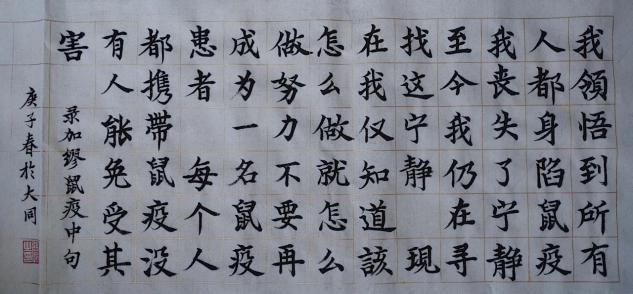 我領悟到所有
人都身陷鼠疫
我丧失了宁静
至今我仍在寻
找这宁静 現
在我仅知道該
怎么做就怎么
做努力不要再
成为一名鼠疫
患者 每个人
都携帶鼠疫没
有人能免受其
害
录加繆鼠疫中句
庚子春於大同